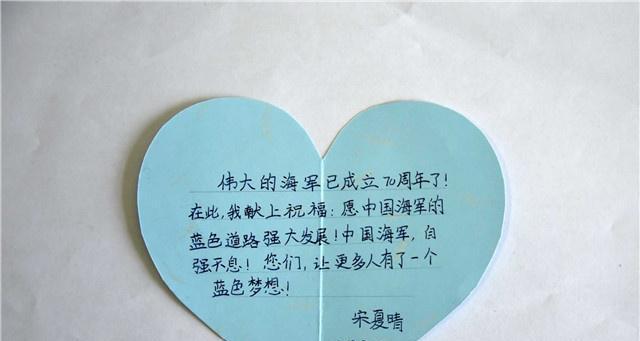 伟大的海军已成立70周年了!
在此,我献上祝福:愿中国海军的
蓝色道路强大发展!中国海军,自
强不息!您们,让更多人有了一个
蓝色梦想!
宋夏晴